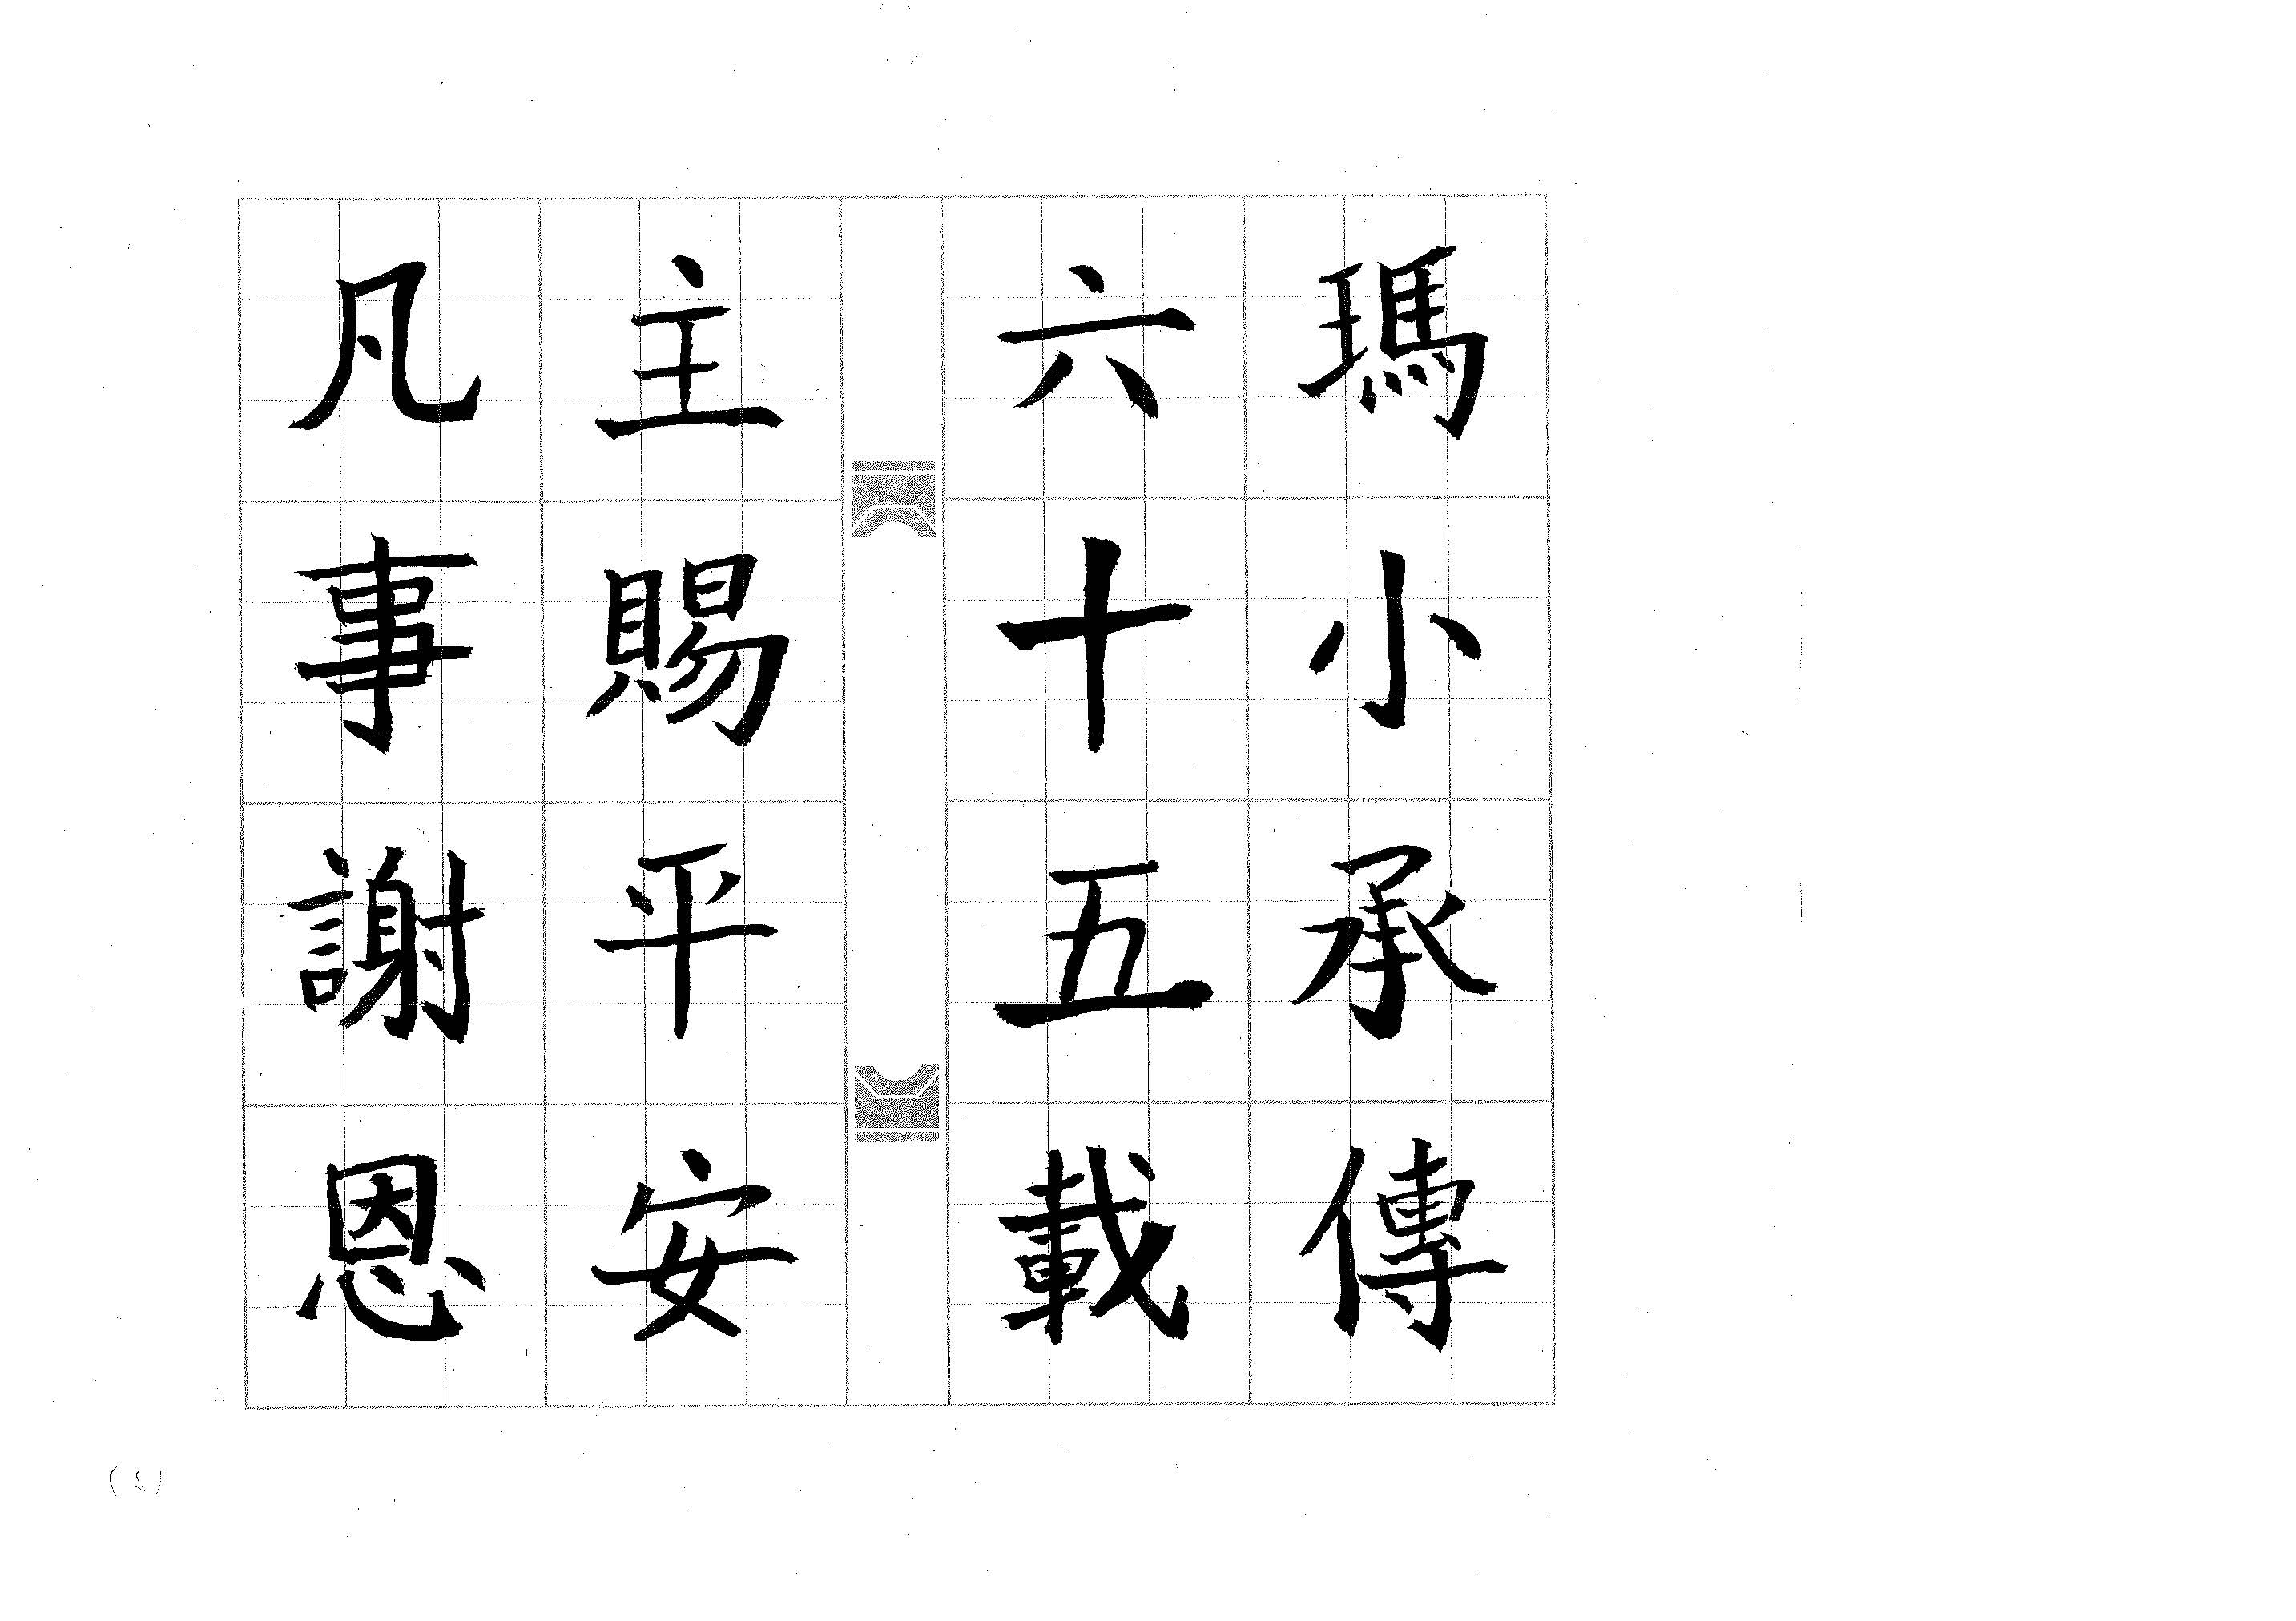 瑪小承傳
六十五載
主賜平安
凡事謝恩